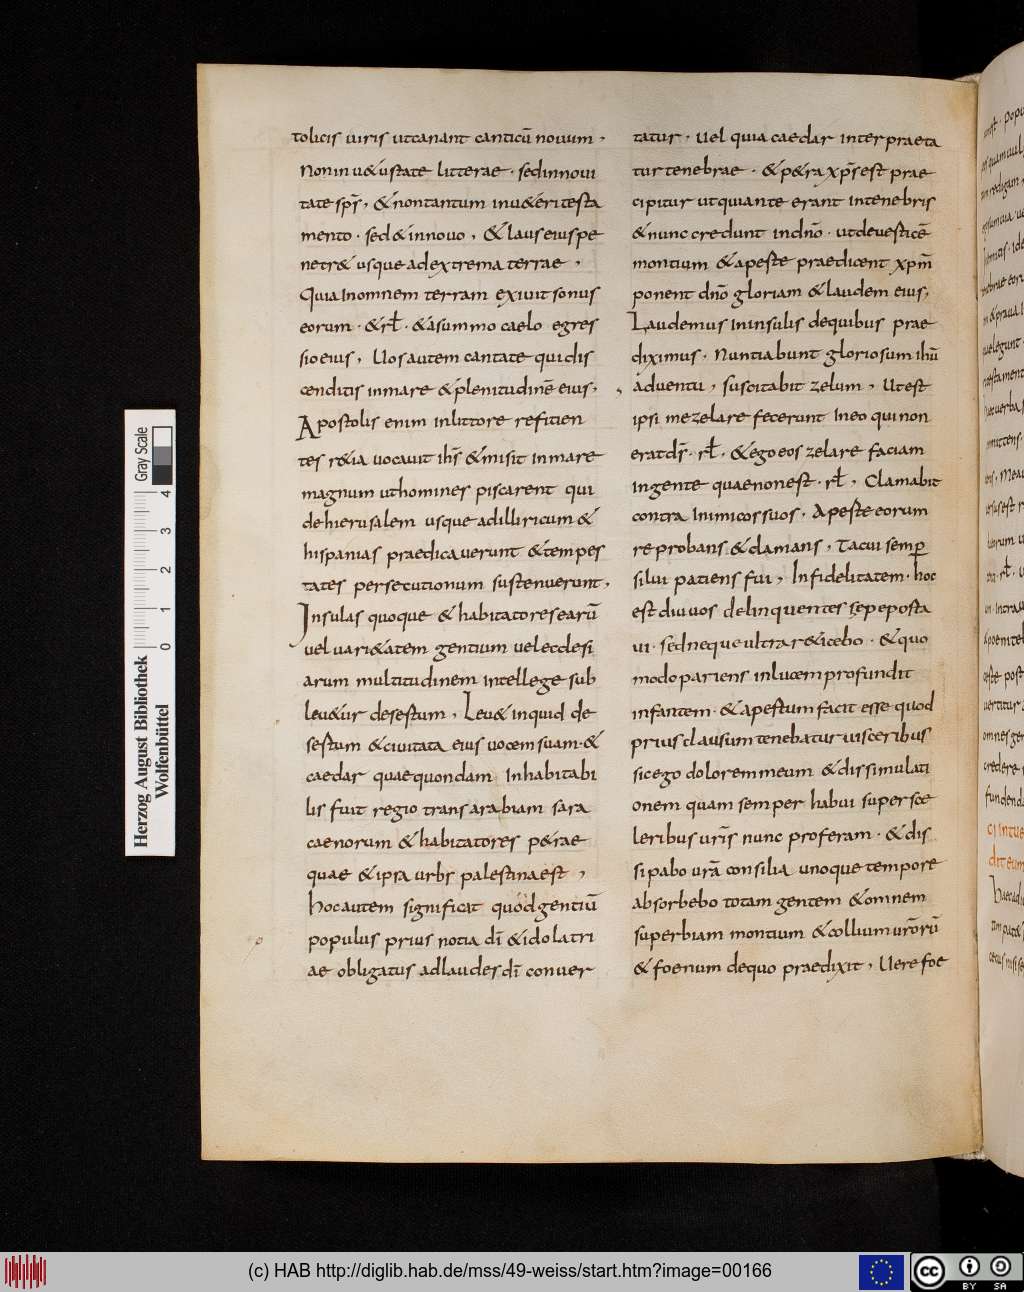 tolicis uiris ut canant canticū nouum ·
Non in u&ustate litterae · sed in noui
tate sp̄s, & non tantum in u&eri testa
mento · sed & in nouo, & laus eius pe
netr& usque ad extrema terrae,
Quia in omnem terram exiuit sonus
eorum · & rł · & a summo caelo egres
sio eius, Uos autem cantate qui dis
cenditis in mare & plenitudinē eius,
Apostolis enim in littore refitien
tes r&ia uocauit ih̄s & misit in mare
magnum ut homines piscarent qui
de hierusalem usque ad illiricum &
hispanias praedicauerunt & tempes
tates persecutionum sustenuerunt,
Insulas quoque & habitatores earū
uel uari&atem gentium uel ecclesi
arum multitudinem intellege sub
leu&ur desertum, Leu& inquid de
sertum & ciuitata eius uocem suam · &
caedar quae quondam Inhabitabi
lis fuit regio trans arabiam sara
caenorum & habitatores p&rae
quae & ipsa urbs palestina est,
hoc autem significat quod gentiū
populus prius notia dī & idolatri
ae obligatus ad laudes dī conuer
tatur · Uel quia caedar interpraeta
tur tenebrae · & p&ra xp̄s est prae
cipitur ut qui ante erant in tenebris
& nunc credunt in dn̄o · ut de uesticē
montium & a peste praedicent xp̄m
ponent dn̄o gloriam & laudem eius,
Laudemus In insulis de quibus prae
diximus · Nuntiabunt gloriosum ih̄u
aduentu, suscitabit zelum, Ut est
ipsi me zelare fecerunt In eo qui non
erat d̄s · rł · & ego eos zelare faciam
in gente quae non est · rł, Clamabit
contra Inimicos suos, A peste eorum
reprobans & clamans, Tacui semp̄
silui patiens fui, Infidelitatem · hoc
est diu uos delinquentes sepe posta
ui · sed neque ultra r&icebo · & quo
modo pariens in lucem profundit
infantem · & apestum facit esse quod
prius clausum tenebatur uisceribus
sic ego dolorem meum & dissimulati
onem quam semper habui super sce
leribus uris̄ nunc proferam · & dis
sipabo urā consilia uno que tempore
absorbebo totam gentem & omnem
superbiam montium & collium urōrū
& foenum de quo praedixit, Uere foe
Herzog August Bibliothek
Wolfenbüttel
Gray Scale
0 1 2 3 4
(c) HAB http://diglib.hab.de/mss/49-weiss/start.htm?image=00166
cc BY SA